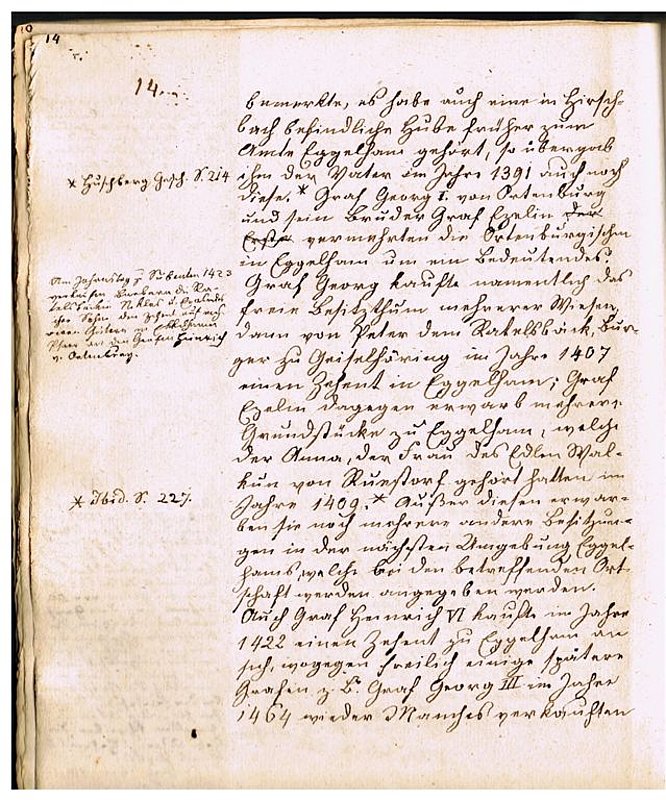 14
14.
bemerkte, es habe auch eine in Hirsch-
bach befindliche Hube früher zum
Amte Eggelham gehört, so übergab
ihm der Vater im Jahre 1391 auch noch
diese.* Graf Georg I. von Ortenburg
und sein Bruder Graf Ezelin der
Erste vermehrten die Ortenburgischen
in Eggelham um ein Bedeutendes.
Graf Georg kaufte namentlich das
freie Besitzthum mehrerer Wiesen,
dann von Peter dem Rakelsböck, Bür-
ger zu Geiselhöring im Jahre 1407
einen Zehent in Eggelham; Graf
Ezelin dagegen erwarb mehrere
Grundstücke zu Eggelham, welche
der Anna, der Frau des Edlen Wal-
kun von Ruestorf gehört hatten im
Jahre 1409.* Außer diesen erwar-
ben sie noch mehrere andere Besitzun-
gen in der nächsten Umgebung Eggel-
hams, welche bei den betreffenden Ort-
schaft werden angegeben werden.
Auch Graf Heinrich VI kaufte im Jahre
1422 einen Zehent zu Eggelham an
sich, wogegen freilich einige spätere
Grafen z. B. Graf Georg III im Jahre
1464 wieder Manches verkauften
* Huschberg Gesch. S. 214
1423
verkaufen
den Zehent auf meh-
reren Gütern in
Pfarr an den Grafen Heinrich
v. Ortenburg.
* Ibid. S. 227.